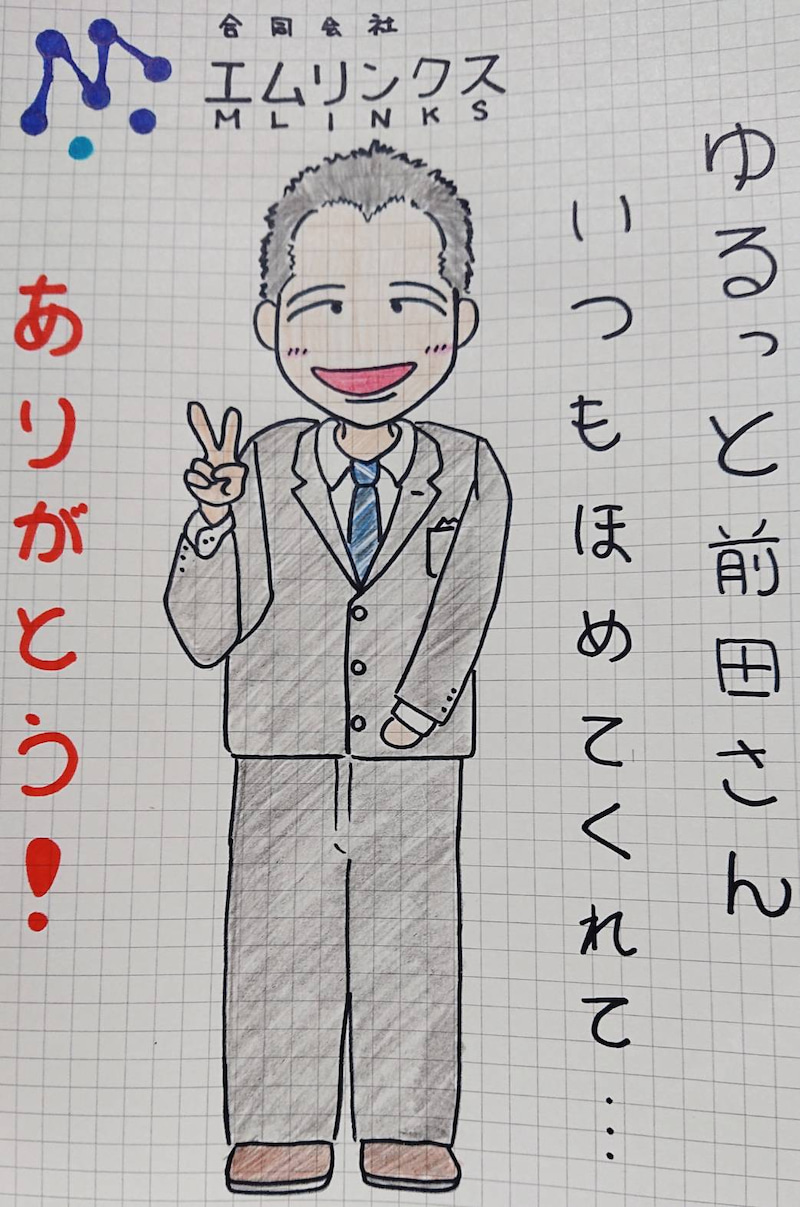 合同会社
エムリンクス
MLINKS
ゆるっと前田さん
いつもほめてくれて…
ありがとう!